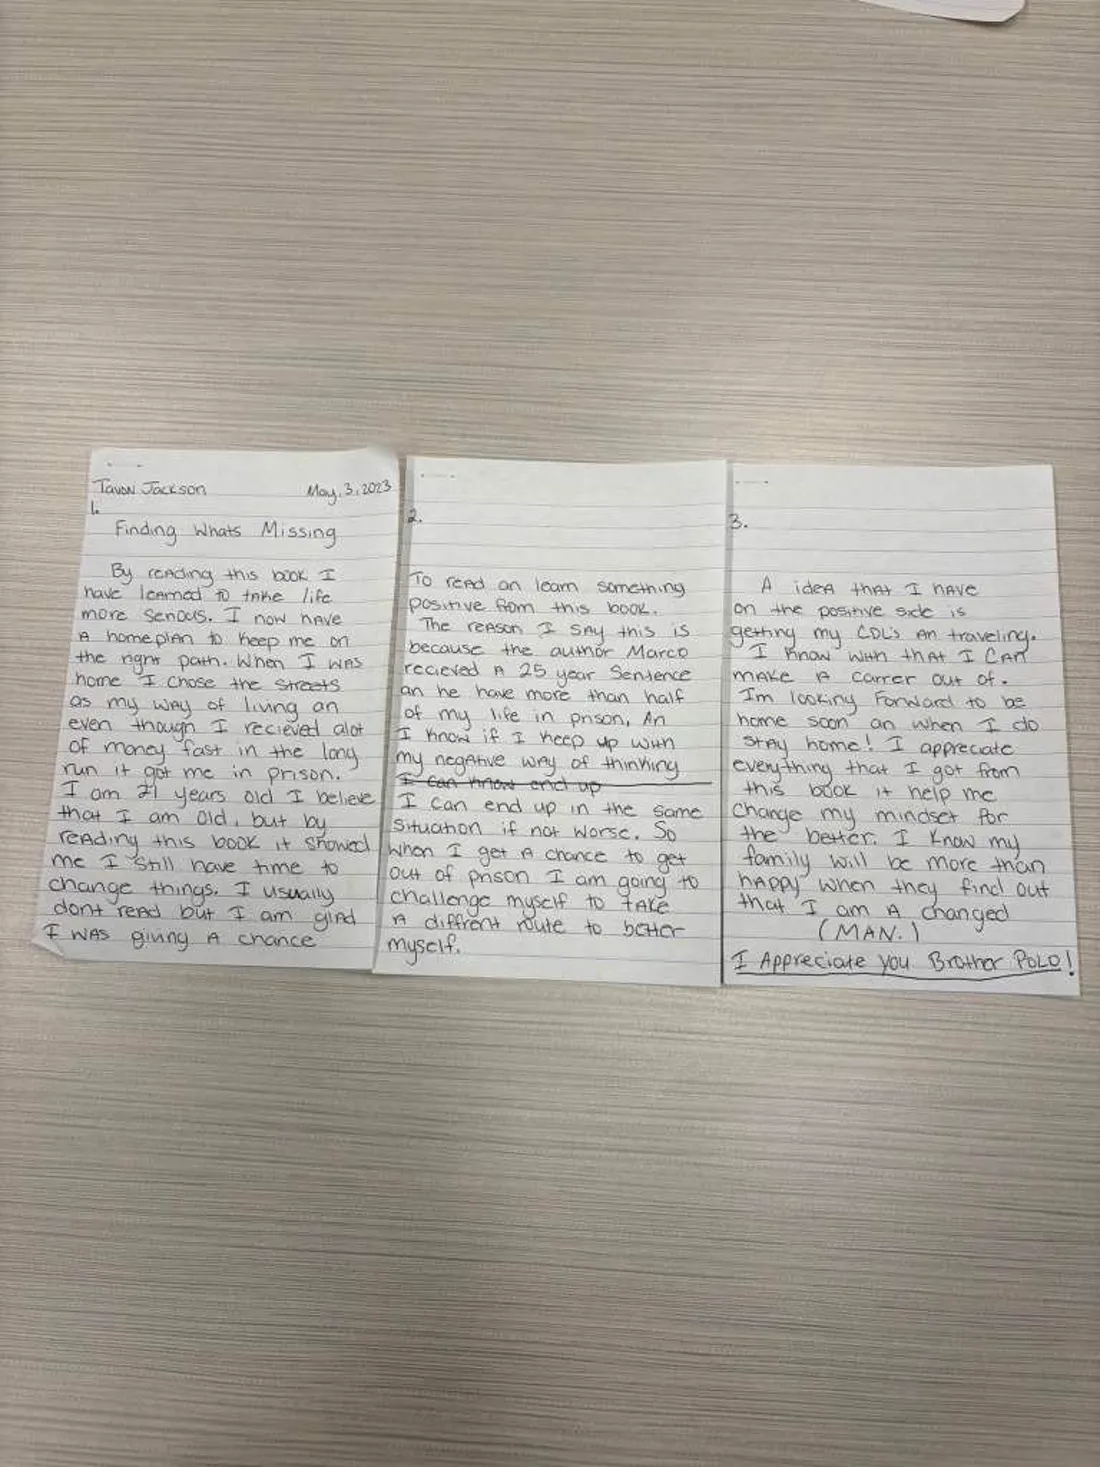 Tavon Jackson May, 3, 2023
1.
Finding Whats Missing
By reading this book I
have learned to take life
more serious. I now have
A homeplan to keep me on
the right path. When I was
home I chose the streets
as my way of living an
even though I recieved alot
of money fast in the long
run it got me in prison.
I am 21 years old I believe
that I am old, but by
reading this book it showed
me I still have time to
change things. I usually
dont read but I am glad
I was giving A chance
2.
To read an learn something
positive from this book.
The reason I say this is
because the author Marco
recieved A 25 year Sentence
an he have more than half
of my life in prison, An
I know if I keep up with
my negative way of thinking
I can know end up
I can end up in the same
situation if not worse. So
when I get A chance to get
out of prison I am going to
challenge myself to take
A diffrent route to better
myself.
3.
A idea that I have
on the positive side is
getting my CDL's an traveling.
I know with that I can
make A carrer out of.
Im looking Forward to be
home soon an when I do
stay home! I appreciate
everything that I got from
this book it help me
change my mindset for
the better. I know my
family will be more than
happy when they find out
that I am A changed
(MAN.)
I Appreciate you Brother POLO!